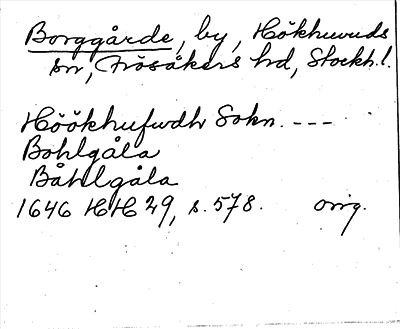 Borggårde, by, Hökhuvuds
sn, Frösåkers hd, Stockh.l.
Höökhufwdh Sokn. ---
Bohlgåla
Båhlgåla
1646 HH 29, s. 578. orig.